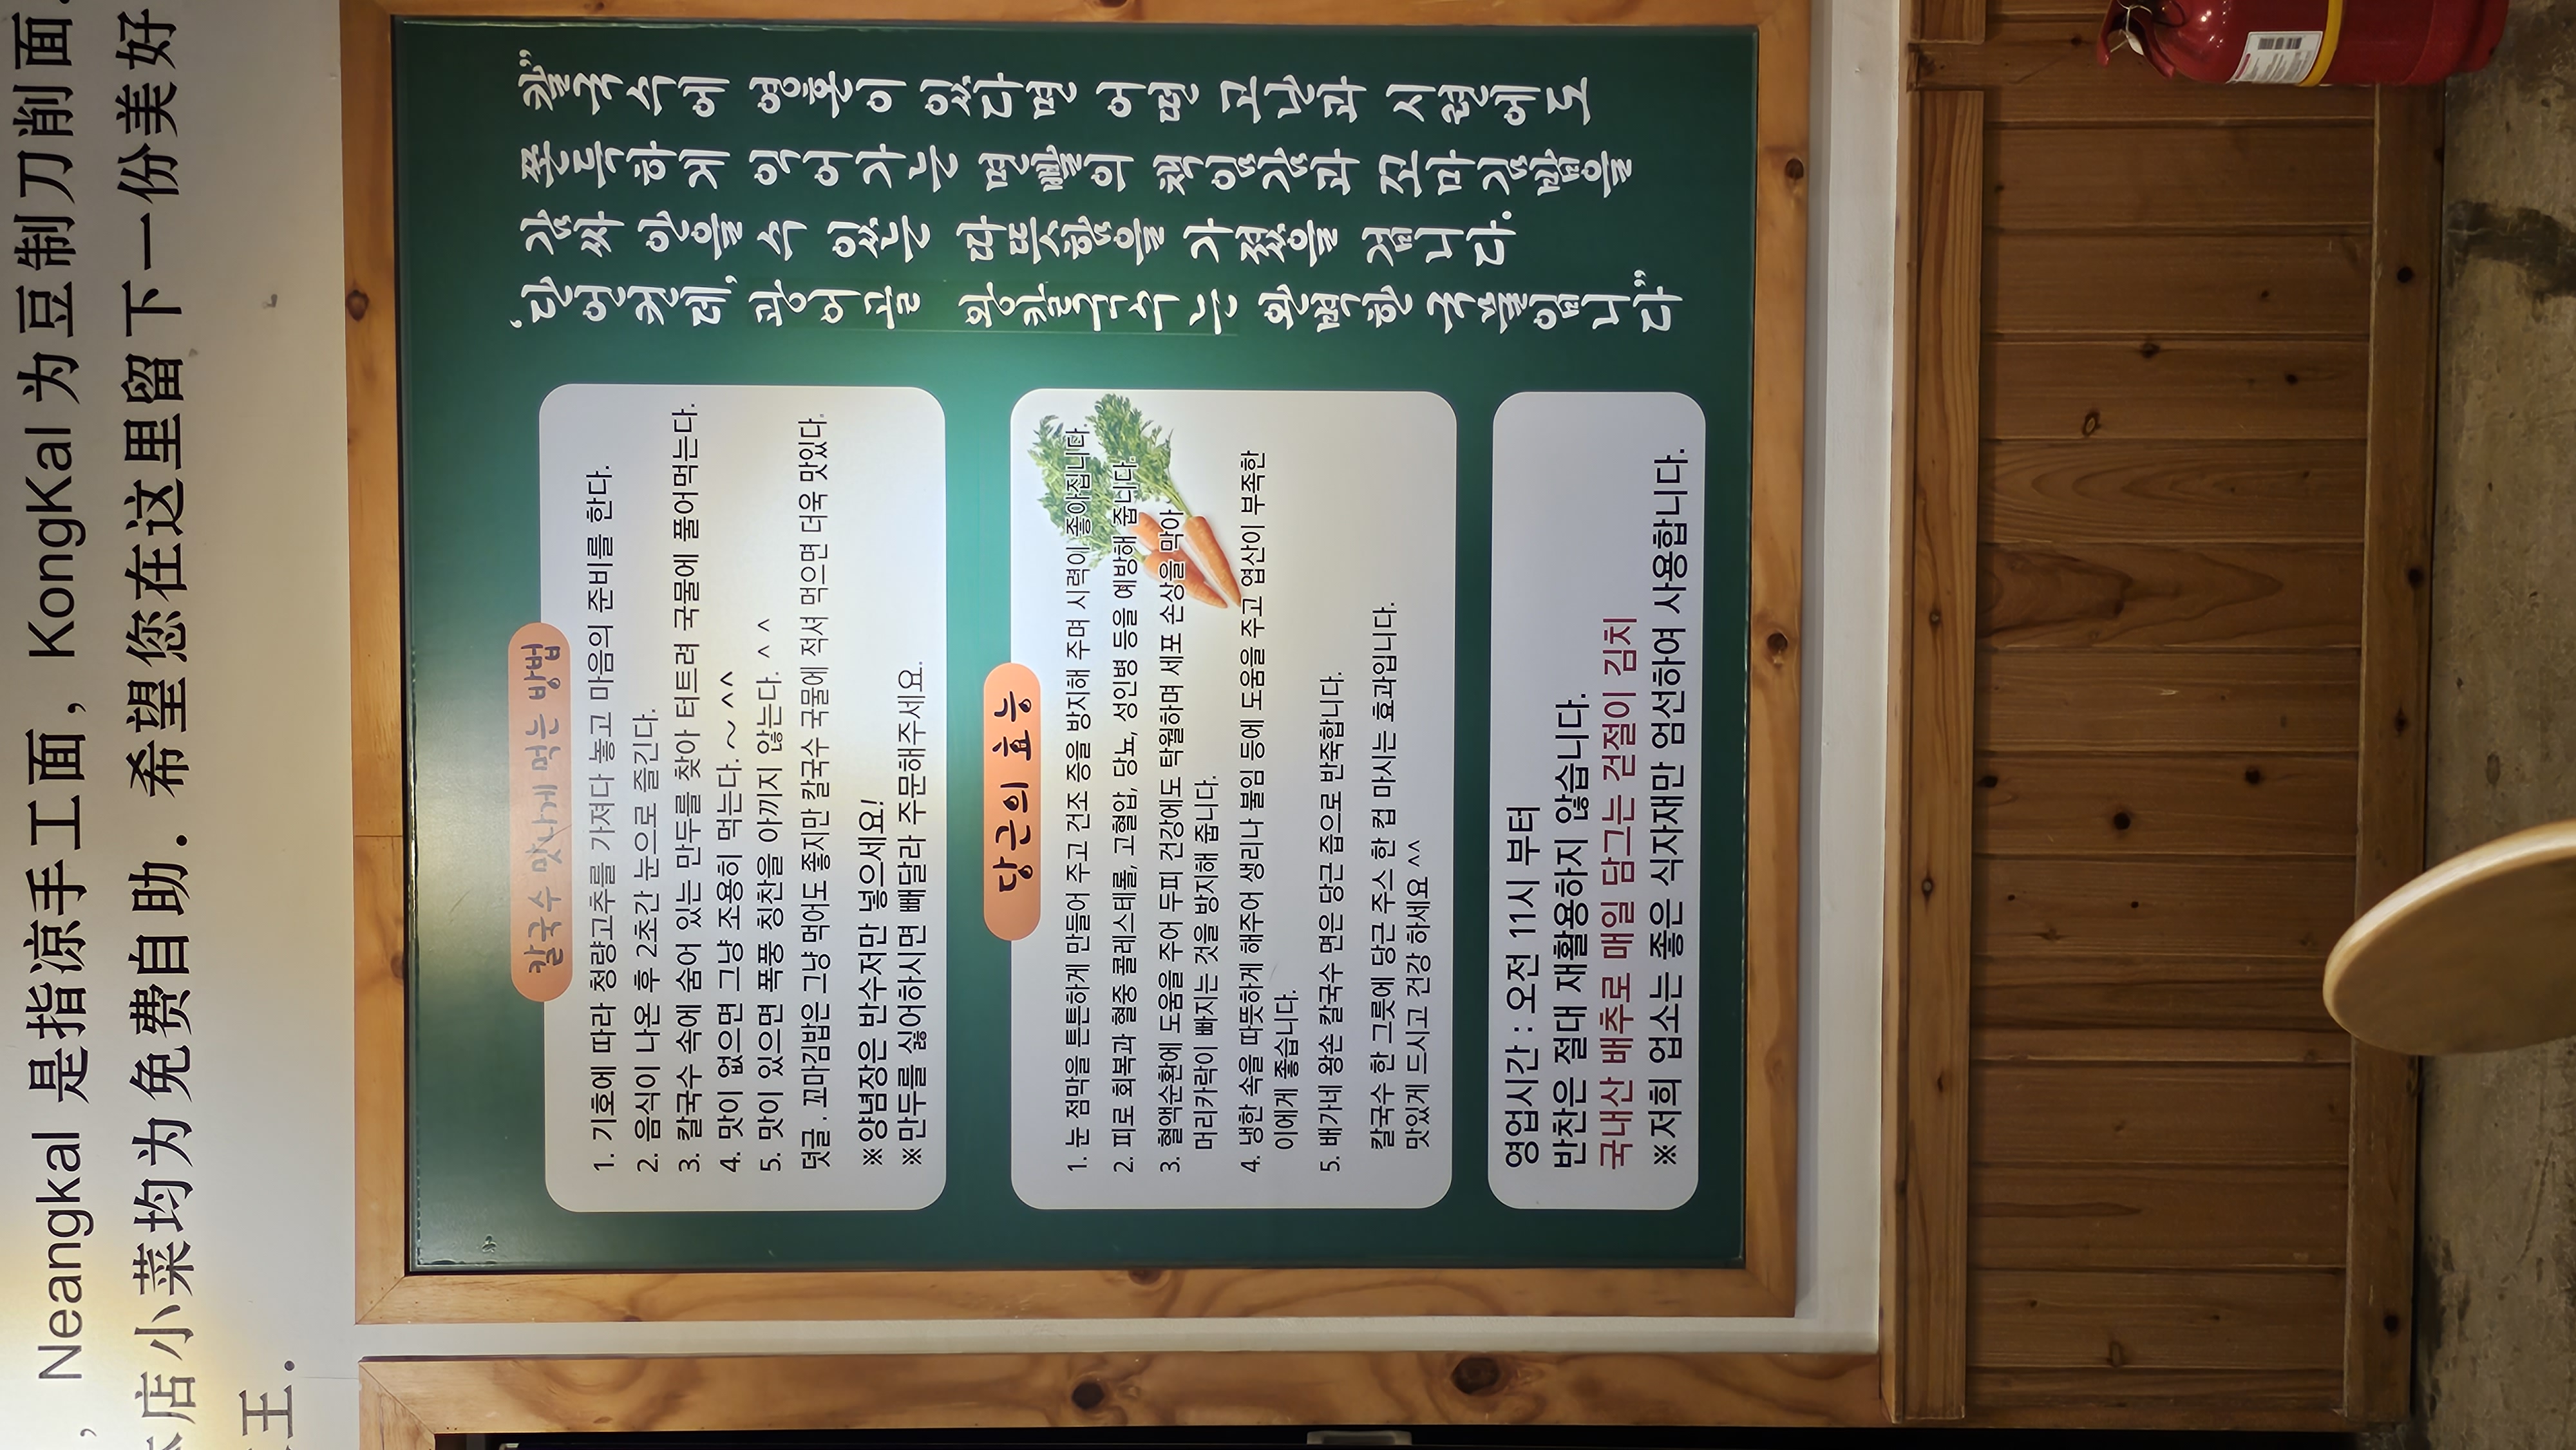 , Neangkal 是指凉手工面, KongKal 为豆制刀削面.
本店小菜均为免费自助. 希望您在这里留下一份美好
王.
칼국수 맛나게 먹는 방법
1. 기호에 따라 청량고추를 가져다 놓고 마음의 준비를 한다.
2. 음식이 나온 후 2초간 눈으로 즐긴다.
3. 칼국수 속에 숨어 있는 만두를 찾아 터트려 국물에 풀어먹는다.
4. 맛이 없으면 그냥 조용히 먹는다. ~ ^^
5. 맛이 있으면 폭풍 칭찬을 아끼지 않는다. ^ ^
덧글 . 꼬마김밥은 그냥 먹어도 좋지만 칼국수 국물에 적셔 먹으면 더욱 맛있다.
※양념장은 반수저만 넣으세요!
※만두를 싫어하시면 빼달라 주문해주세요.
당근의 효능
1. 눈 점막을 튼튼하게 만들어 주고 건조 증을 방지해 주며 시력이 좋아집니다.
2. 피로 회복과 혈중 콜레스테롤, 고혈압, 당뇨, 성인병 등을 예방해 줍니다.
3. 혈액순환에 도움을 주어 두피 건강에도 탁월하며 세포 손상을 막아
머리카락이 빠지는 것을 방지해 줍니다.
4. 냉한 속을 따뜻하게 해주어 생리나 불임 등에 도움을 주고 엽산이 부족한
이에게 좋습니다.
5. 배가네 왕손 칼국수 면은 당근 즙으로 반죽합니다.
칼국수 한 그릇에 당근 주스 한 컵 마시는 효과입니다.
맛있게 드시고 건강 하세요 ^^
영업시간 : 오전 11시 부터
반찬은 절대 재활용하지 않습니다.
국내산 배추로 매일 담그는 겉절이 김치
※저희 업소는 좋은 식자재만 엄선하여 사용합니다.
"칼국수에 영혼이 있다면 어떤 고난과 시련에도
쫀득하게 익어가는 면빨의 책임감과 꼬마김밥을
감싸 안을 수 있는 따뜻함을 가졌을 겁니다.
'단언컨데, 왕칼국수는 완벽한 국물입니다"